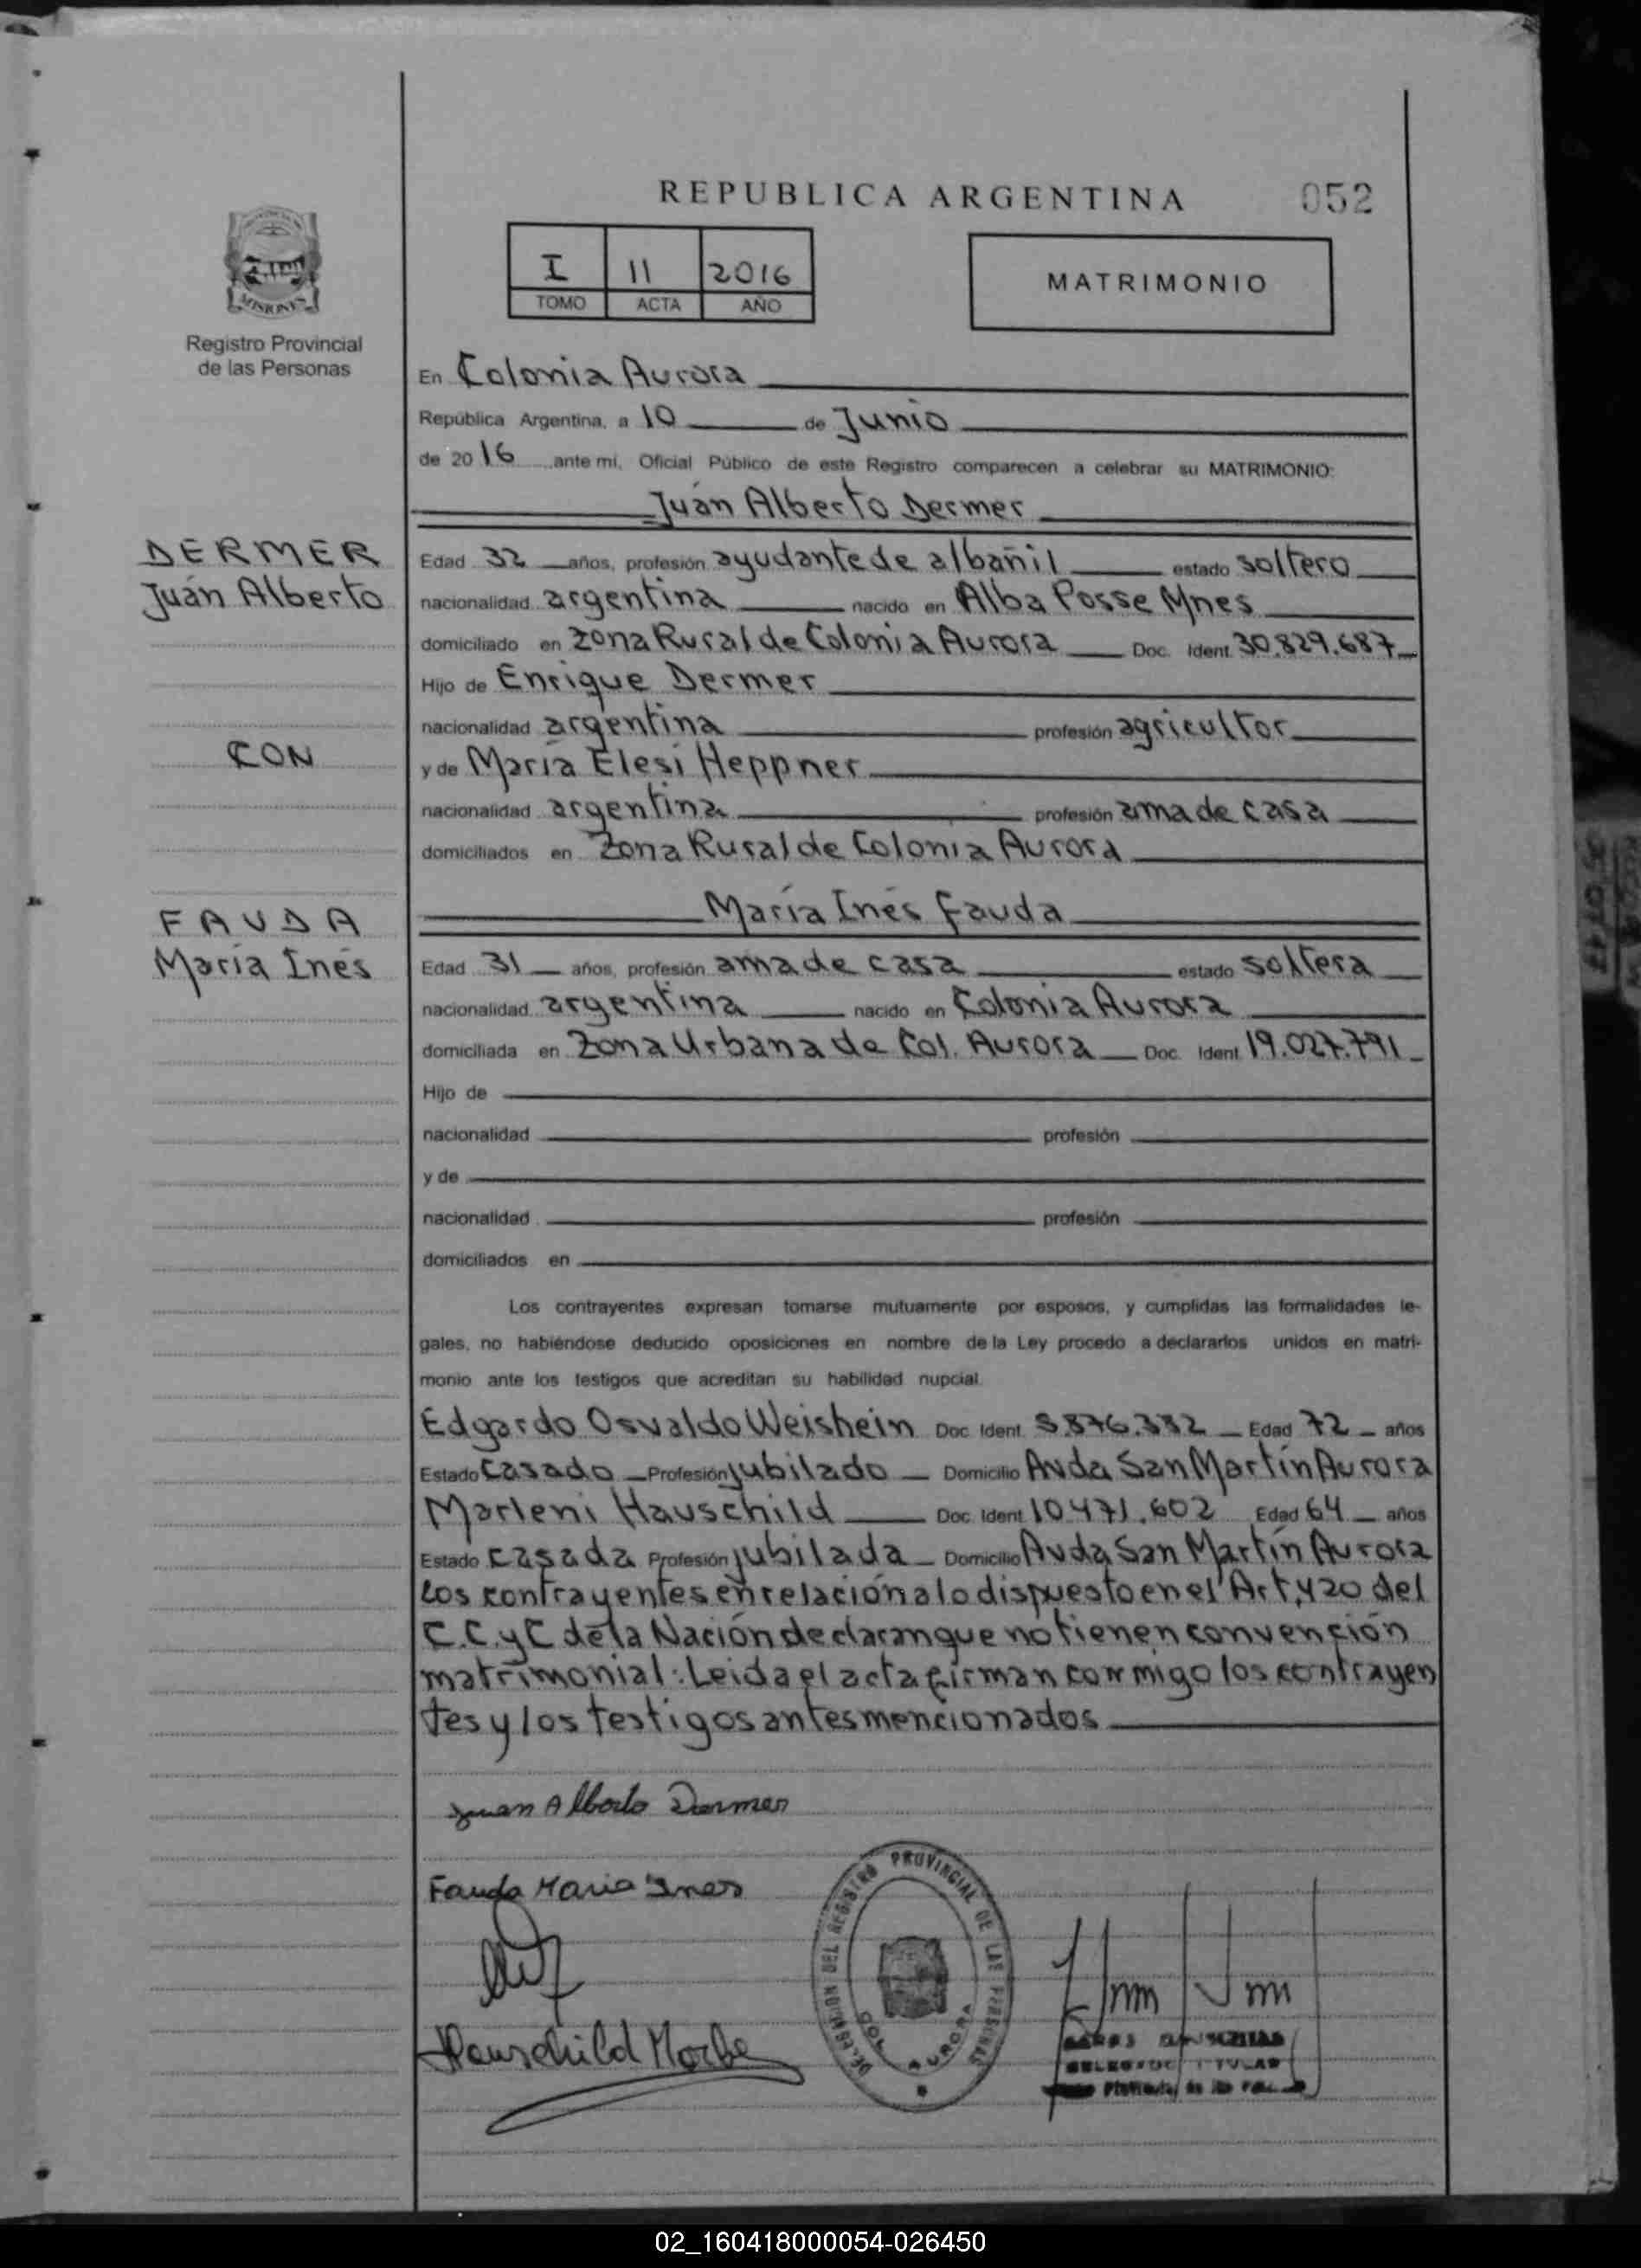 REPUBLICA ARGENTINA 052
I 11 2016
TOMO ACTA AÑO
MATRIMONIO
MISIONES
Registro Provincial
de las Personas
En Colonia Aurora
República Argentina, a 10 de Junio
de 2016 ante mi, Oficial Público de este Registro comparecen a celebrar su MATRIMONIO:
Juán Alberto Dermer
DERMER
Juán Alberto
Edad 32 años, profesión ayudante de albañil estado soltero
nacionalidad argentina nacido en Alba Posse Mnes
domiciliado en Zona Rural de Colonia Aurora Doc. Ident. 30.829.687
Hijo de Enrique Dermer
nacionalidad argentina profesión agricultor
CON
y de María Elesi Heppner
nacionalidad argentina profesión ama de casa
domiciliados en Zona Rural de Colonia Aurora
María Inés Fauda
FAUDA
María Inés
Edad 31 años, profesión ama de casa estado soltera
nacionalidad argentina nacido en Colonia Aurora
domiciliada en Zona Urbana de Col. Aurora Doc. Ident. 19.027.791
Hijo de
nacionalidad profesión
y de
nacionalidad profesión
domiciliados en
Los contrayentes expresan tomarse mutuamente por esposos, y cumplidas las formalidades le-
gales, no habiéndose deducido oposiciones en nombre de la Ley procedo a declararlos unidos en matri-
monio ante los testigos que acreditan su habilidad nupcial.
Edgardo Osvaldo Weishein Doc. Ident. Edad 72 años
Estado casado Profesión jubilado Domicilio Avda San Martín Aurora
Marleni Hauschild Doc. Ident. 10.471.602 Edad 64 años
Estado casada Profesión jubilada Domicilio Avda San Martín Aurora
Los contrayentes en relación a lo dispuesto en el Art, 420 del
C.C.yC de la Nación declaran que no tienen convención
matrimonial: Leida el acta firman conmigo los contrayen
tes y los testigos antes mencionados
Juan Alberto Dermer
Fauda Maria Ines
Hauschild
DEL REGISTRO PROVINCIAL DE LAS PERSONAS
COL AURORA
02_160418000054-026450